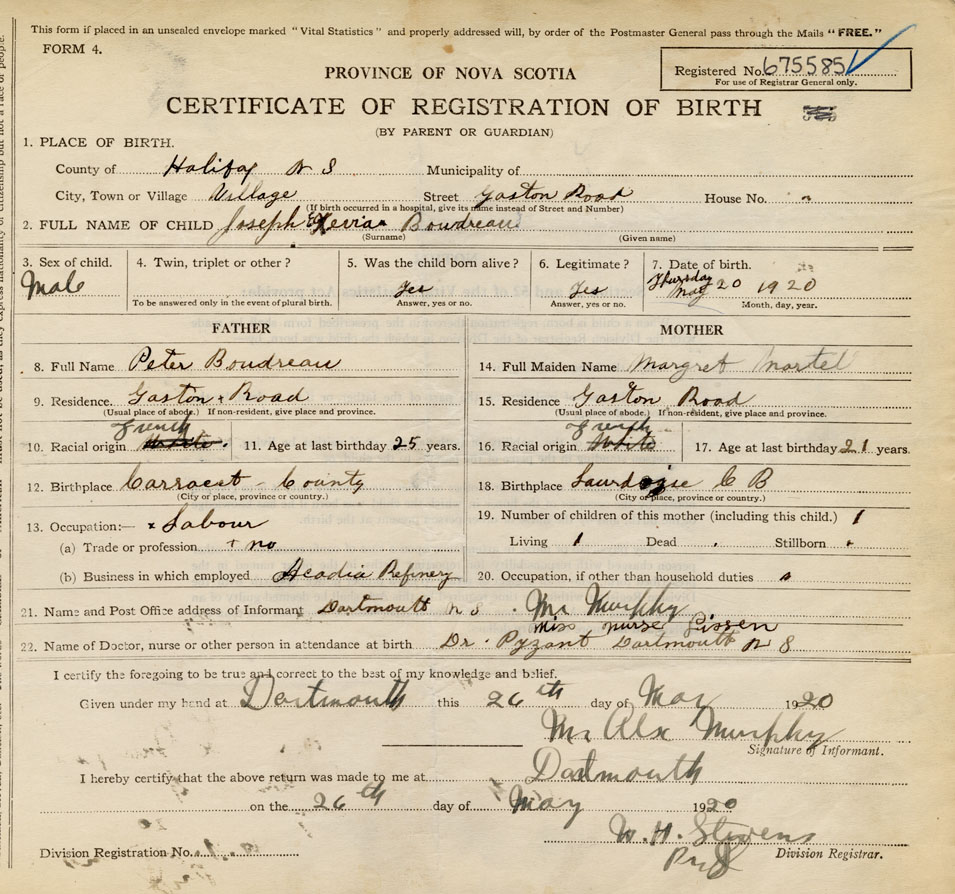 This form if placed in an unsealed envelope marked "Vital Statistics" and properly addressed will, by order of the Postmaster General pass through the Mails "FREE."
FORM 4.
Registered No. 675585
For use of Registrar General only.
PROVINCE OF NOVA SCOTIA
CERTIFICATE OF REGISTRATION OF BIRTH
(BY PARENT OR GUARDIAN)
1. PLACE OF BIRTH.
County of Halifax N S Municipality of
City, Town or Village Village Street Gaston Road House No.
(If birth occurred in a hospital, give its name instead of Street and Number)
2. FULL NAME OF CHILD Joseph Boudreau
(Surname) (Given name)
3. Sex of child. 4. Twin, triplet or other? 5. Was the child born alive? 6. Legitimate? 7. Date of birth.
Male Yes Yes Thursday May 20 1920
To be answered only in the event of plural birth. Answer, yes or no. Answer, yes or no. Month, day, year.
FATHER MOTHER
8. Full Name Peter Boudreau 14. Full Maiden Name Margret Martel
9. Residence. Gaston Road 15. Residence Gaston Road
(Usual place of abode.) If non-resident, give place and province. (Usual place of abode.) If non-resident, give place and province.
French French
10. Racial origin White. 11. Age at last birthday 25 years. 16. Racial origin White 17. Age at last birthday 21 years.
12. Birthplace County 18. Birthplace C B
(City or place, province or country.) (City or place, province or country.)
13. Occupation:— x Labour 19. Number of children of this mother (including this child.) 1
(a) Trade or profession + no Living 1 Dead Stillborn
(b) Business in which employed Acadia Refinery 20. Occupation, if other than household duties
21. Name and Post Office address of Informant Dartmouth N S. Mr Murphy
Miss nurse
22. Name of Doctor, nurse or other person in attendance at birth Dr. Pyzant Dartmouth N S
I certify the foregoing to be true and correct to the best of my knowledge and belief.
Given under my hand at Dartmouth this 26th day of May 1920
Mr Alx Murphy
Signature of Informant.
I hereby certify that the above return was made to me at Dartmouth
on the 26th day of May 1920
W. H. Stevens
Division Registration No. Division Registrar.